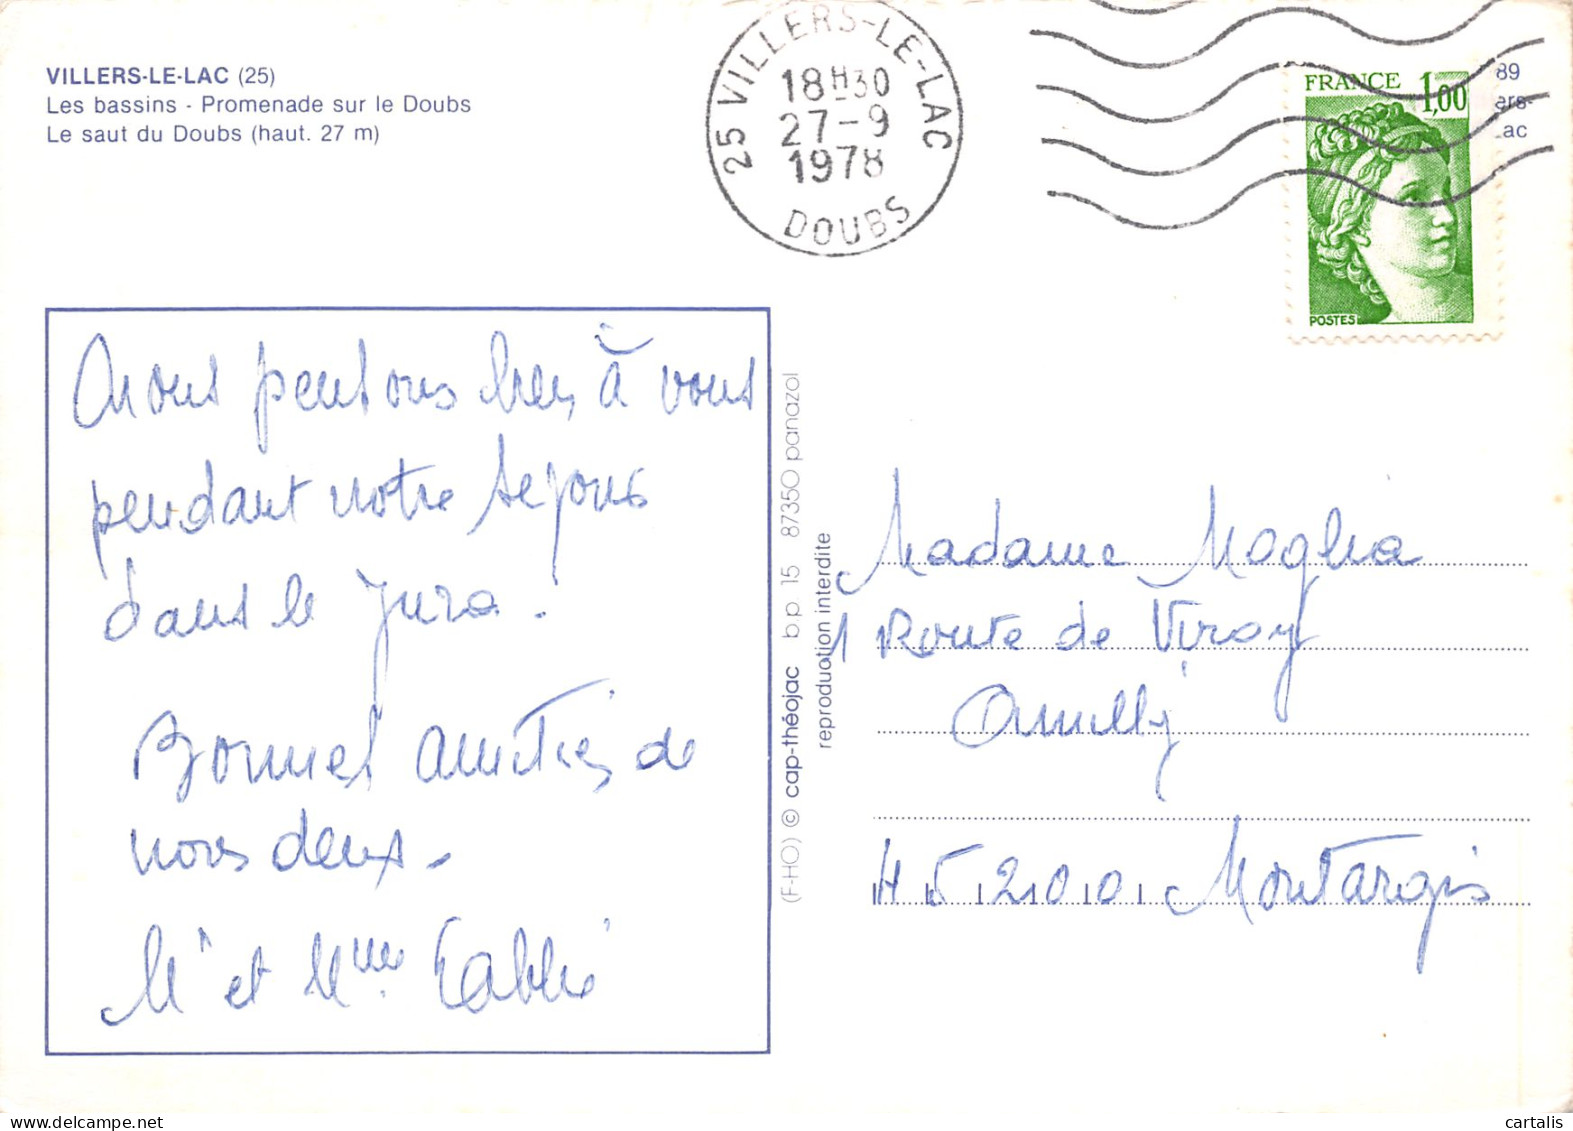 VILLERS-LE-LAC (25)
Les bassins - Promenade sur le Doubs
Le saut du Doubs (haut. 27 m)
25 VILLERS-LE-LAC
18H30
27-9
1978
DOUBS
FRANCE 1,00
POSTES
89
ers-
ac
Nous pensons bien à vous
pendant notre séjour
dans le Jura.
Bonnes amitiés de
nous deux.
Mr et Mme
(F-HO) © cap-théojac b.p. 15 87350 panazol
reproduction interdite
Madame Moglia
1 Route de Viroy
Amilly
45200 Montargis
cartalis